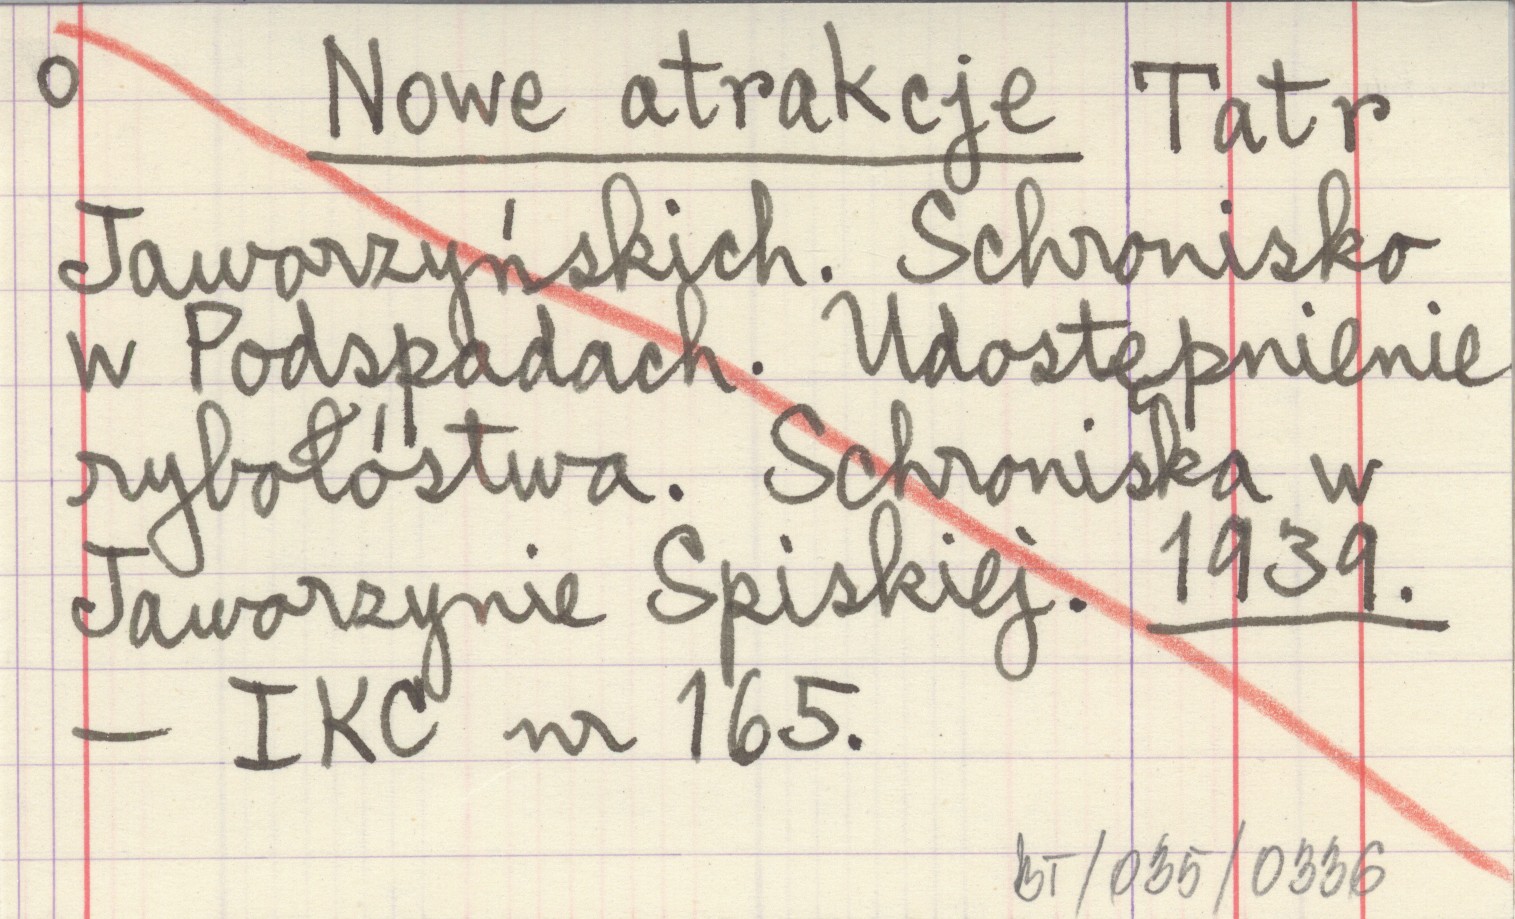 o Nowe atrakcje Tatr
Jaworzyńskich. Schronisko
w Podspadach. Udostępnienie
rybołóstwa. Schroniska w
Jaworzynie Spiskiej. 1939.
— IKC nr 165.
BT/035/0336